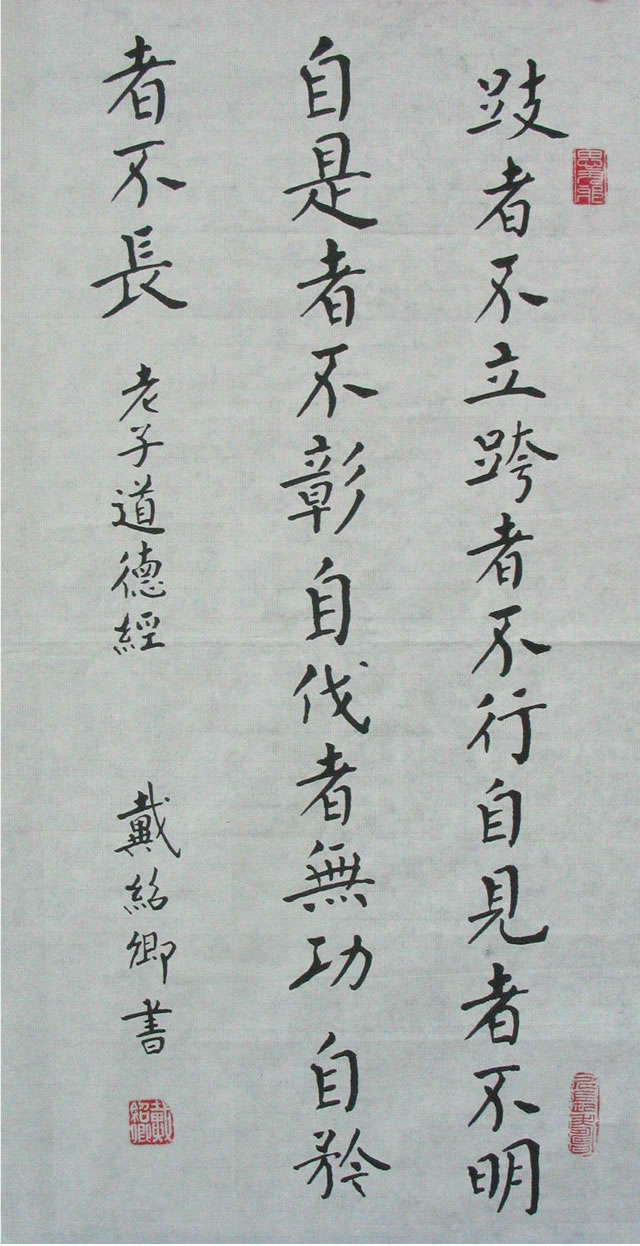 跂者不立跨者不行自見者不明
自是者不彰自伐者無功自矜
者不長
老子道德經
戴紹卿書
戴紹卿